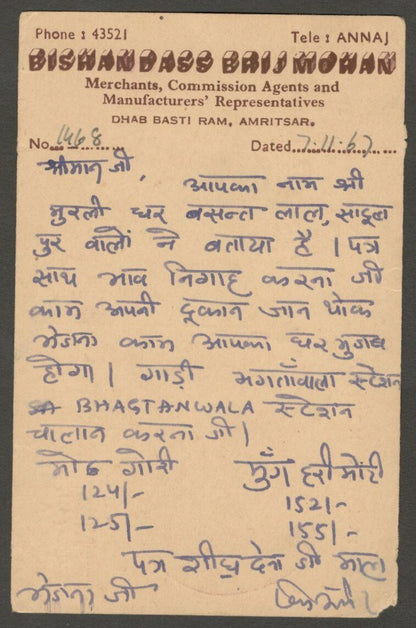 Phone : 43521 Tele : ANNAJ
BISHAN DASS BRIJ MOHAN
Merchants, Commission Agents and
Manufacturers' Representatives
DHAB BASTI RAM, AMRITSAR.
No. 1468 Dated 7.11.67
श्रीमान जी,
आपका नाम श्री
मुरली धर बसन्त लाल, सादूल
पुर वालों ने बताया है । पत्र
साथ भाव निगाह करना जी
काम अपनी दूकान जान थोक
भेजना काम आपका घर मुताब
होगा । गाड़ी भगताँवाला स्टेशन
BHAGTANWALA स्टेशन
चालान करना जी ।
मोठ गोरी मुँग हरी मोटी
124/- 152/-
125/- 155/-
पत्र शीघ्र देना जी माल
भेजना जी